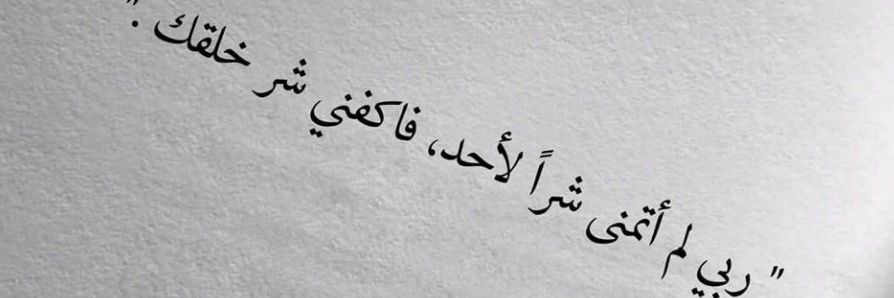 " ربي لم أتمنى شراً لأحد، فاكفني شر خلقك . "